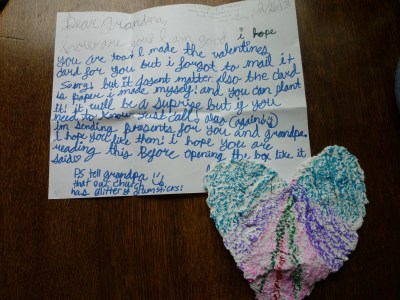 Dear Grandma,
how are you? I am good! i hope
you are too! I made the valentines
card for you but i forgot to mail it
Sorry! but it dosent matter. also the card
is paper i made myself! and you can plant
it! it will be a suprise but if you
need to know just call, also (again!)
I'm sending presents for you and grandpa.
I hope you like them! i hope you are
reading this Bfore opening the box like it
said
PS tell grandpa
that our church
has glittery drumsticks!